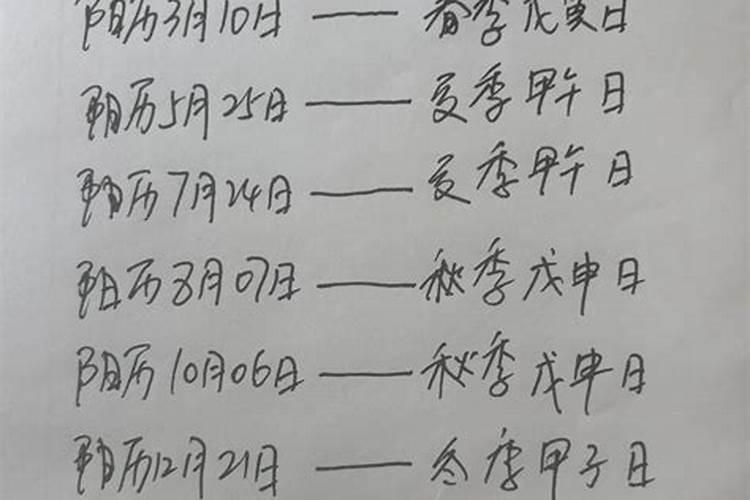 阳历3月10日——春季戊寅日
阳历5月25日——夏季甲午日
阳历7月24日——夏季甲午日
阳历8月07日——秋季戊申日
阳历10月06日——秋季戊申日
阳历12月21日——冬季甲子日